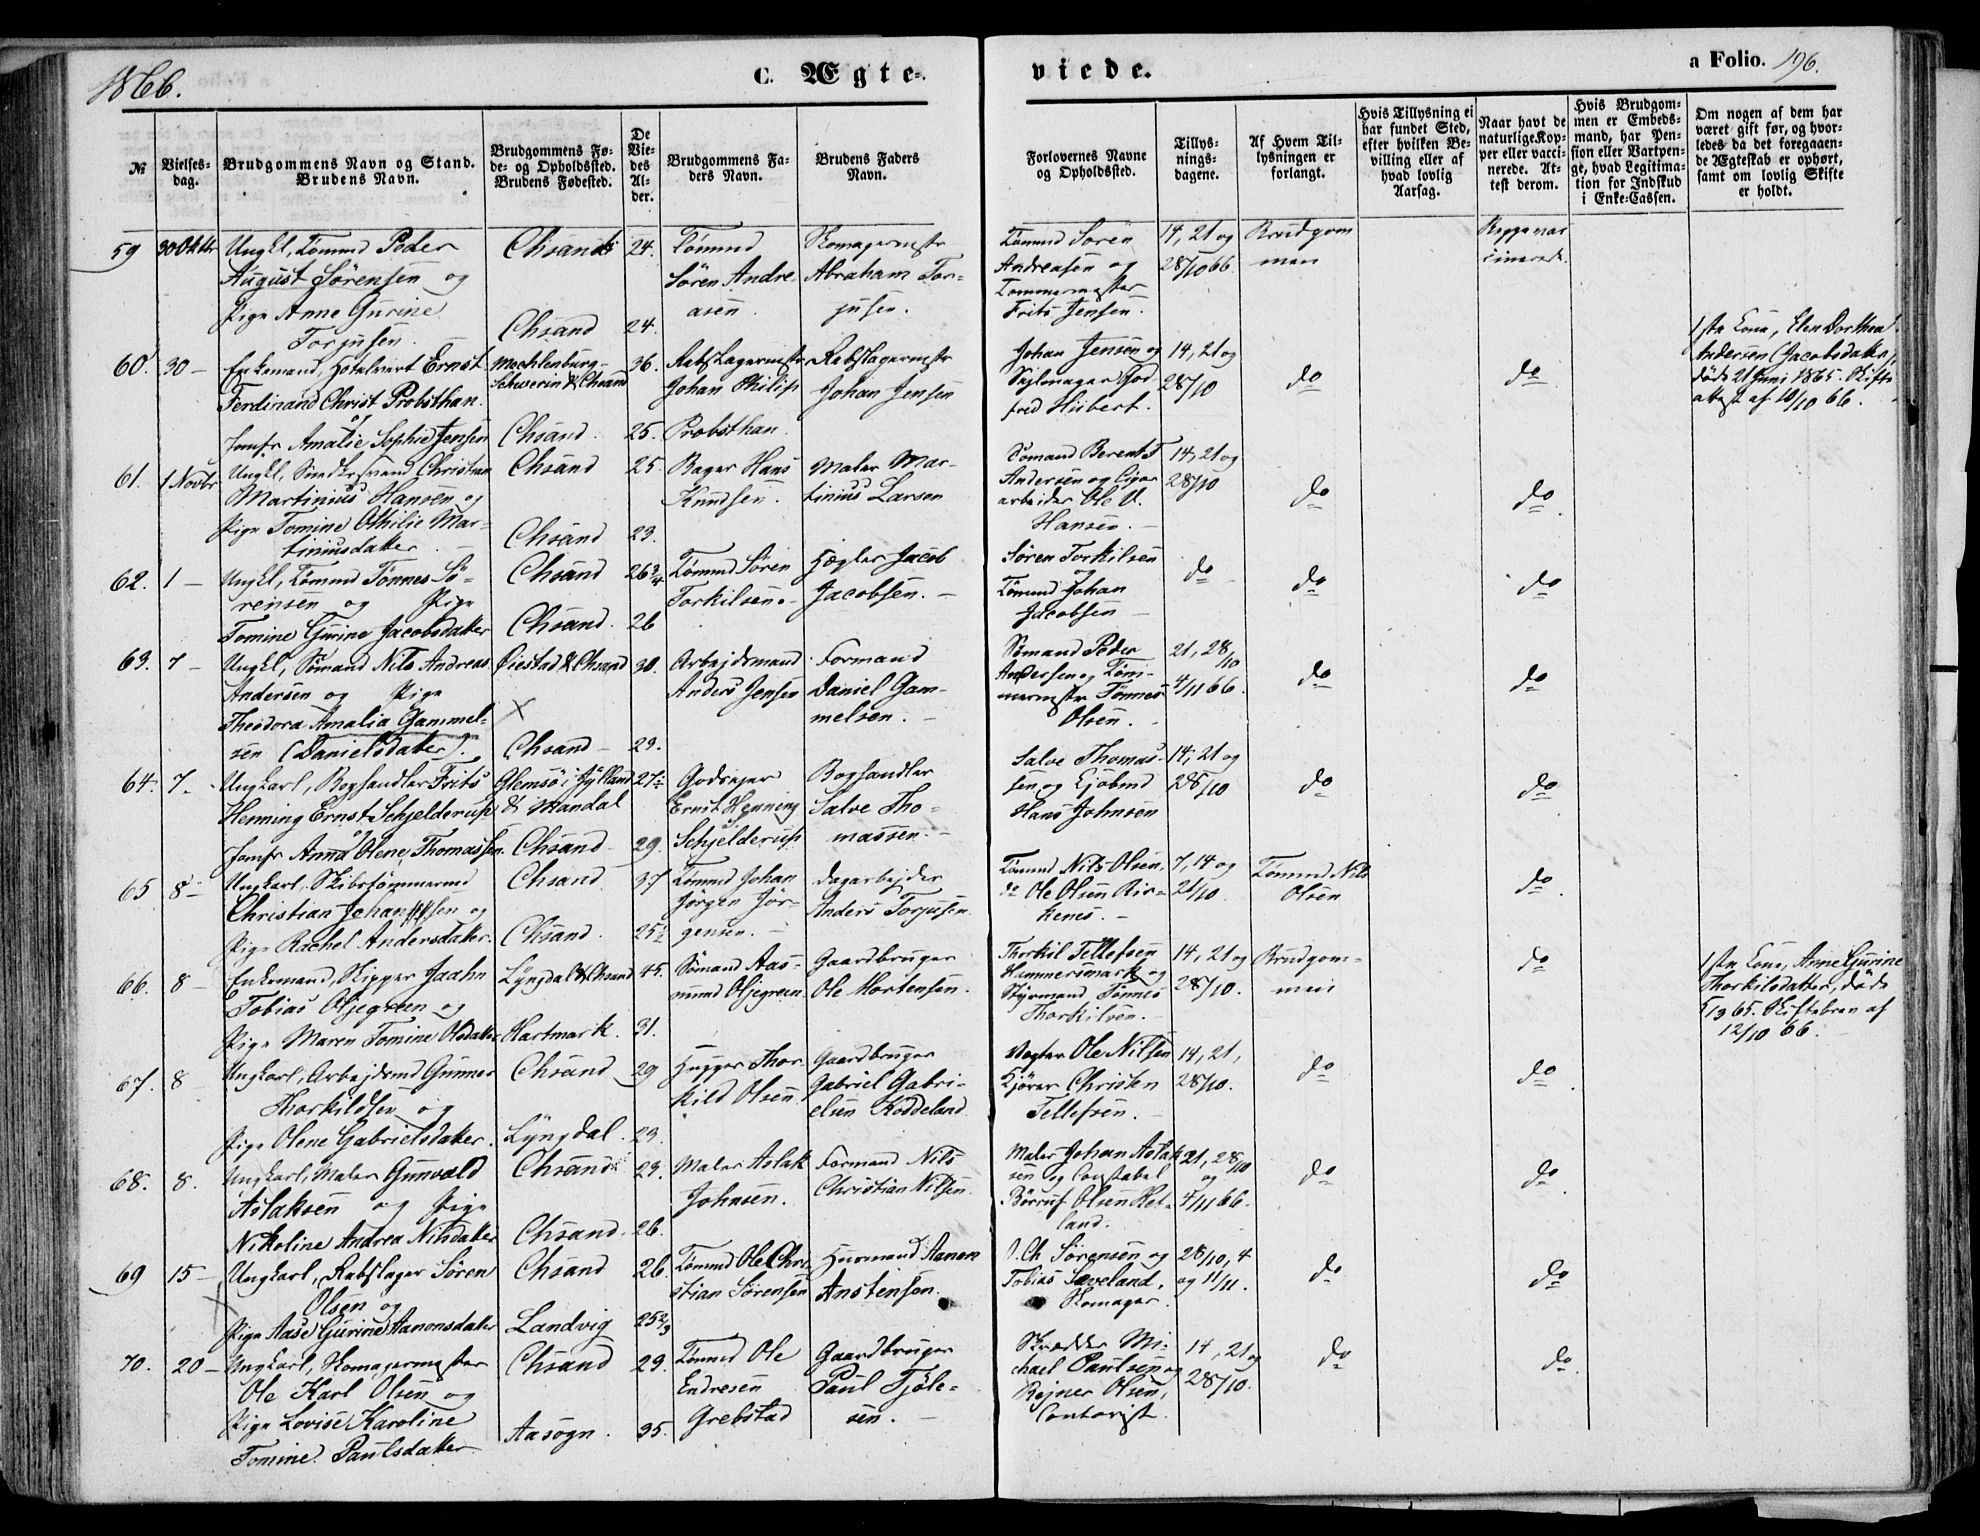 1866.
C. Ægte-
viede.
a Folio. 196.
№
Vielses-
dag.
Brudgommens Navn og Stand.
Brudens Navn.
Brudgommens Fø-
de- og Opholdssted.
Brudens Fødested.
De
Vie-
des
Al-
der.
Brudgommens Fa-
ders Navn.
Brudens Faders
Navn.
Forlovernes Navne
og Opholdssted.
Tillys-
nings-
dagene.
Af Hvem Til-
lysningen er
forlangt.
Hvis Tillysning ei
har fundet Sted,
efter hvilken Be-
villing eller af
hvad lovlig
Aarsag.
Naar havt de
naturlige Kop-
per eller vacci-
nerede. At-
test derom.
Hvis Brudgom-
men er Embeds-
mand, har Pen-
sion eller Vartpen-
ge, hvad Legitima-
tion for Indskud
i Enke-Cassen.
Om nogen af dem har
været gift før, og hvor-
ledes da det foregaaen-
de Ægteskab er ophørt,
samt om lovlig Skifte
er holdt.
59 30 Oktbr Ungkl, Tømmd Peder
August Sørensen og
Pige Anne Gurine
Torjusen.
Chsand 24.
Chsand 24.
Tømmd
Søren Andre-
asen
Skomagermstr
Abraham Tor-
jusen.
Tømmd Søren
Andreasen og
Tømmermester
Frits Jensen.
14, 21 og
28/10 66.
Brudgom
men
Begge vac
cinerede.
60. 30 - Enkemand, Hotelvært Ernst
Ferdinand Christ Probsthan.
Jomfr Amalie Sophie Jensen
Mechlenburg-
Schwerin & Chsand 36.
Chsand. 25.
Rebslagermstr
Johan Philip
Probsthan.
Rebslagermstr
Johan Jensen
Johan Jensen og
Sejlmager God
fred Hübert.
14, 21 og
28/10
do
do
1ste Kone, Elen Dorthea
Andersen (Jacobsdatter)
døde 21 Juni 1865. Skifte
attest af 10/10 66.
61. 1 Novbr Ungkl, Snedkersvend Christian
Martinius Hansen og
Pige Tomine Othilie Mar-
tiniusdatter.
Chsand 25.
Chsand 23.
Bager Hans
Knudsen.
Maler Mar-
tinius Larsen
Sømand Berent T
Andersen og Cigar
arbeider Ole V.
Hansen.
14, 21 og
28/10
do
do
62. 1 - Ungkl, Tømmd Tønnes Sö-
rensen og Pige
Tomine Gurine Jacobsdatter
Chsand 26 3/4
Chsand. 26
Tømmd Søren
Torkilsen.
Hægler Jacob
Jacobsen.
Søren Torkilsen
og
Tømmd Johan
Jacobsen
do
do
do
63. 7 - Ungkl, Sømand Nils Andreas
Andersen og Pige
Theodora Amalia Gammel-
sen (Danielsdatter).
Øiestad & Chsand 30.
X
Chsand - 29.
Arbejdsmand
Anders Jensen
Formand
Daniel Gam-
melsen.
Sømand Peder
Andersen og Tøm-
mermstr Tønnes
Olsen.
21, 28/10
4/11 66.
do
do
64. 7. Ungkarl, Boghandler Frits
Henning Ernst Schjelderup
Jomfr Anna Olene Thomassen.
Glemsø i Jylland
& Mandal 27 1/2
Chsand 29.
Godsejer
Ernst Henning
Schjelderup
Boghandler
Salve Tho-
massen.
Salve Thomas-
sen og Kjøbmd
Hans Johnsen
14, 21 og
28/10
do
do
65 8 - Ungkarl, Skibstømmermd
Christian Johansen og
Pige Rachel Andersdatter.
Chsand 37
Chsand. 25 1/2
Tømmd Johan
Jørgen Jör-
gensen.
Dagarbejder
Anders Torjusen.
Tømmd Nils Olsen,
do Ole Olsen Bir-
kenes.
7, 14 og
21/10.
Tømmd Nils
Olsen
do
66. 8 - Enkemand, Skipper Jaahn
Tobias Oljegreen og
Pige Maren Tomine Olsdatter
Lyngdal & Chsand 45.
Hartmark. 31.
Sømand Aas-
mund Oljegreen
Gaardbruger
Ole Mortensen.
Thorkil Tellefsen
Hummersmark og
Styrmand Tønnes
Thorkilsen.
14, 21 og
28/10.
Brudgom-
men
do
1ste Kone, Anne Gurine
Thorkilsdatter, døde
65. Skiftebrev af
12/10 66.
67. 8 Ungkarl, Arbejdsmd Gunner
Thorkildsen og
Pige Olene Gabrielsdatter.
Chsand 29
Lyngdal. 23.
Hugger Thor-
kild Olsen.
Gaardbruger
Gabriel Gabri-
elsen Køddeland.
Vægter Ole Nilsen
Kjører Christen
Tellefsen.
14, 21,
28/10.
do
do
68. 8. Ungkarl, Maler Gunvald
Aslaksen og Pige
Nikoline Andrea Nilsdatter
Chsand 23.
Chsand. 26.
Maler Aslak
Johnsen.
Formand Nils
Christian Nilsen.
Maler Johan Aslak
sen og Constabel
Børruf Olsen Het-
land.
21, 28/10
og
4/11 66.
do
do
69 15 - Ungkarl, Rebslager Søren
Olsen og
Pige Aase Gurine Aanonsdatter
X
Chsand 26.
Landvig 25 2/3
Tømmd Ole Chri-
stian Sörensen
Huusmand Aanon
Anstensen.
O. Ch Sørensen og
Tobias Sæveland,
Skomager.
28/10, 4
og 11/11.
do
do
70. 20 - Ungkarl, Skomagermester
Ole Karl Olsen og
Pige Lovise Karoline
Tomine Paulsdatter
Chsand 29.
Aasogn. 35.
Tømmd Ole
Endresen
Grebstad
Gaardbruger
Paul Tjöle-
sen.
Skrædder Mi-
chael Paulsen og
Rejner Olsen,
Contorist.
14, 21 og
28/10.
do
do